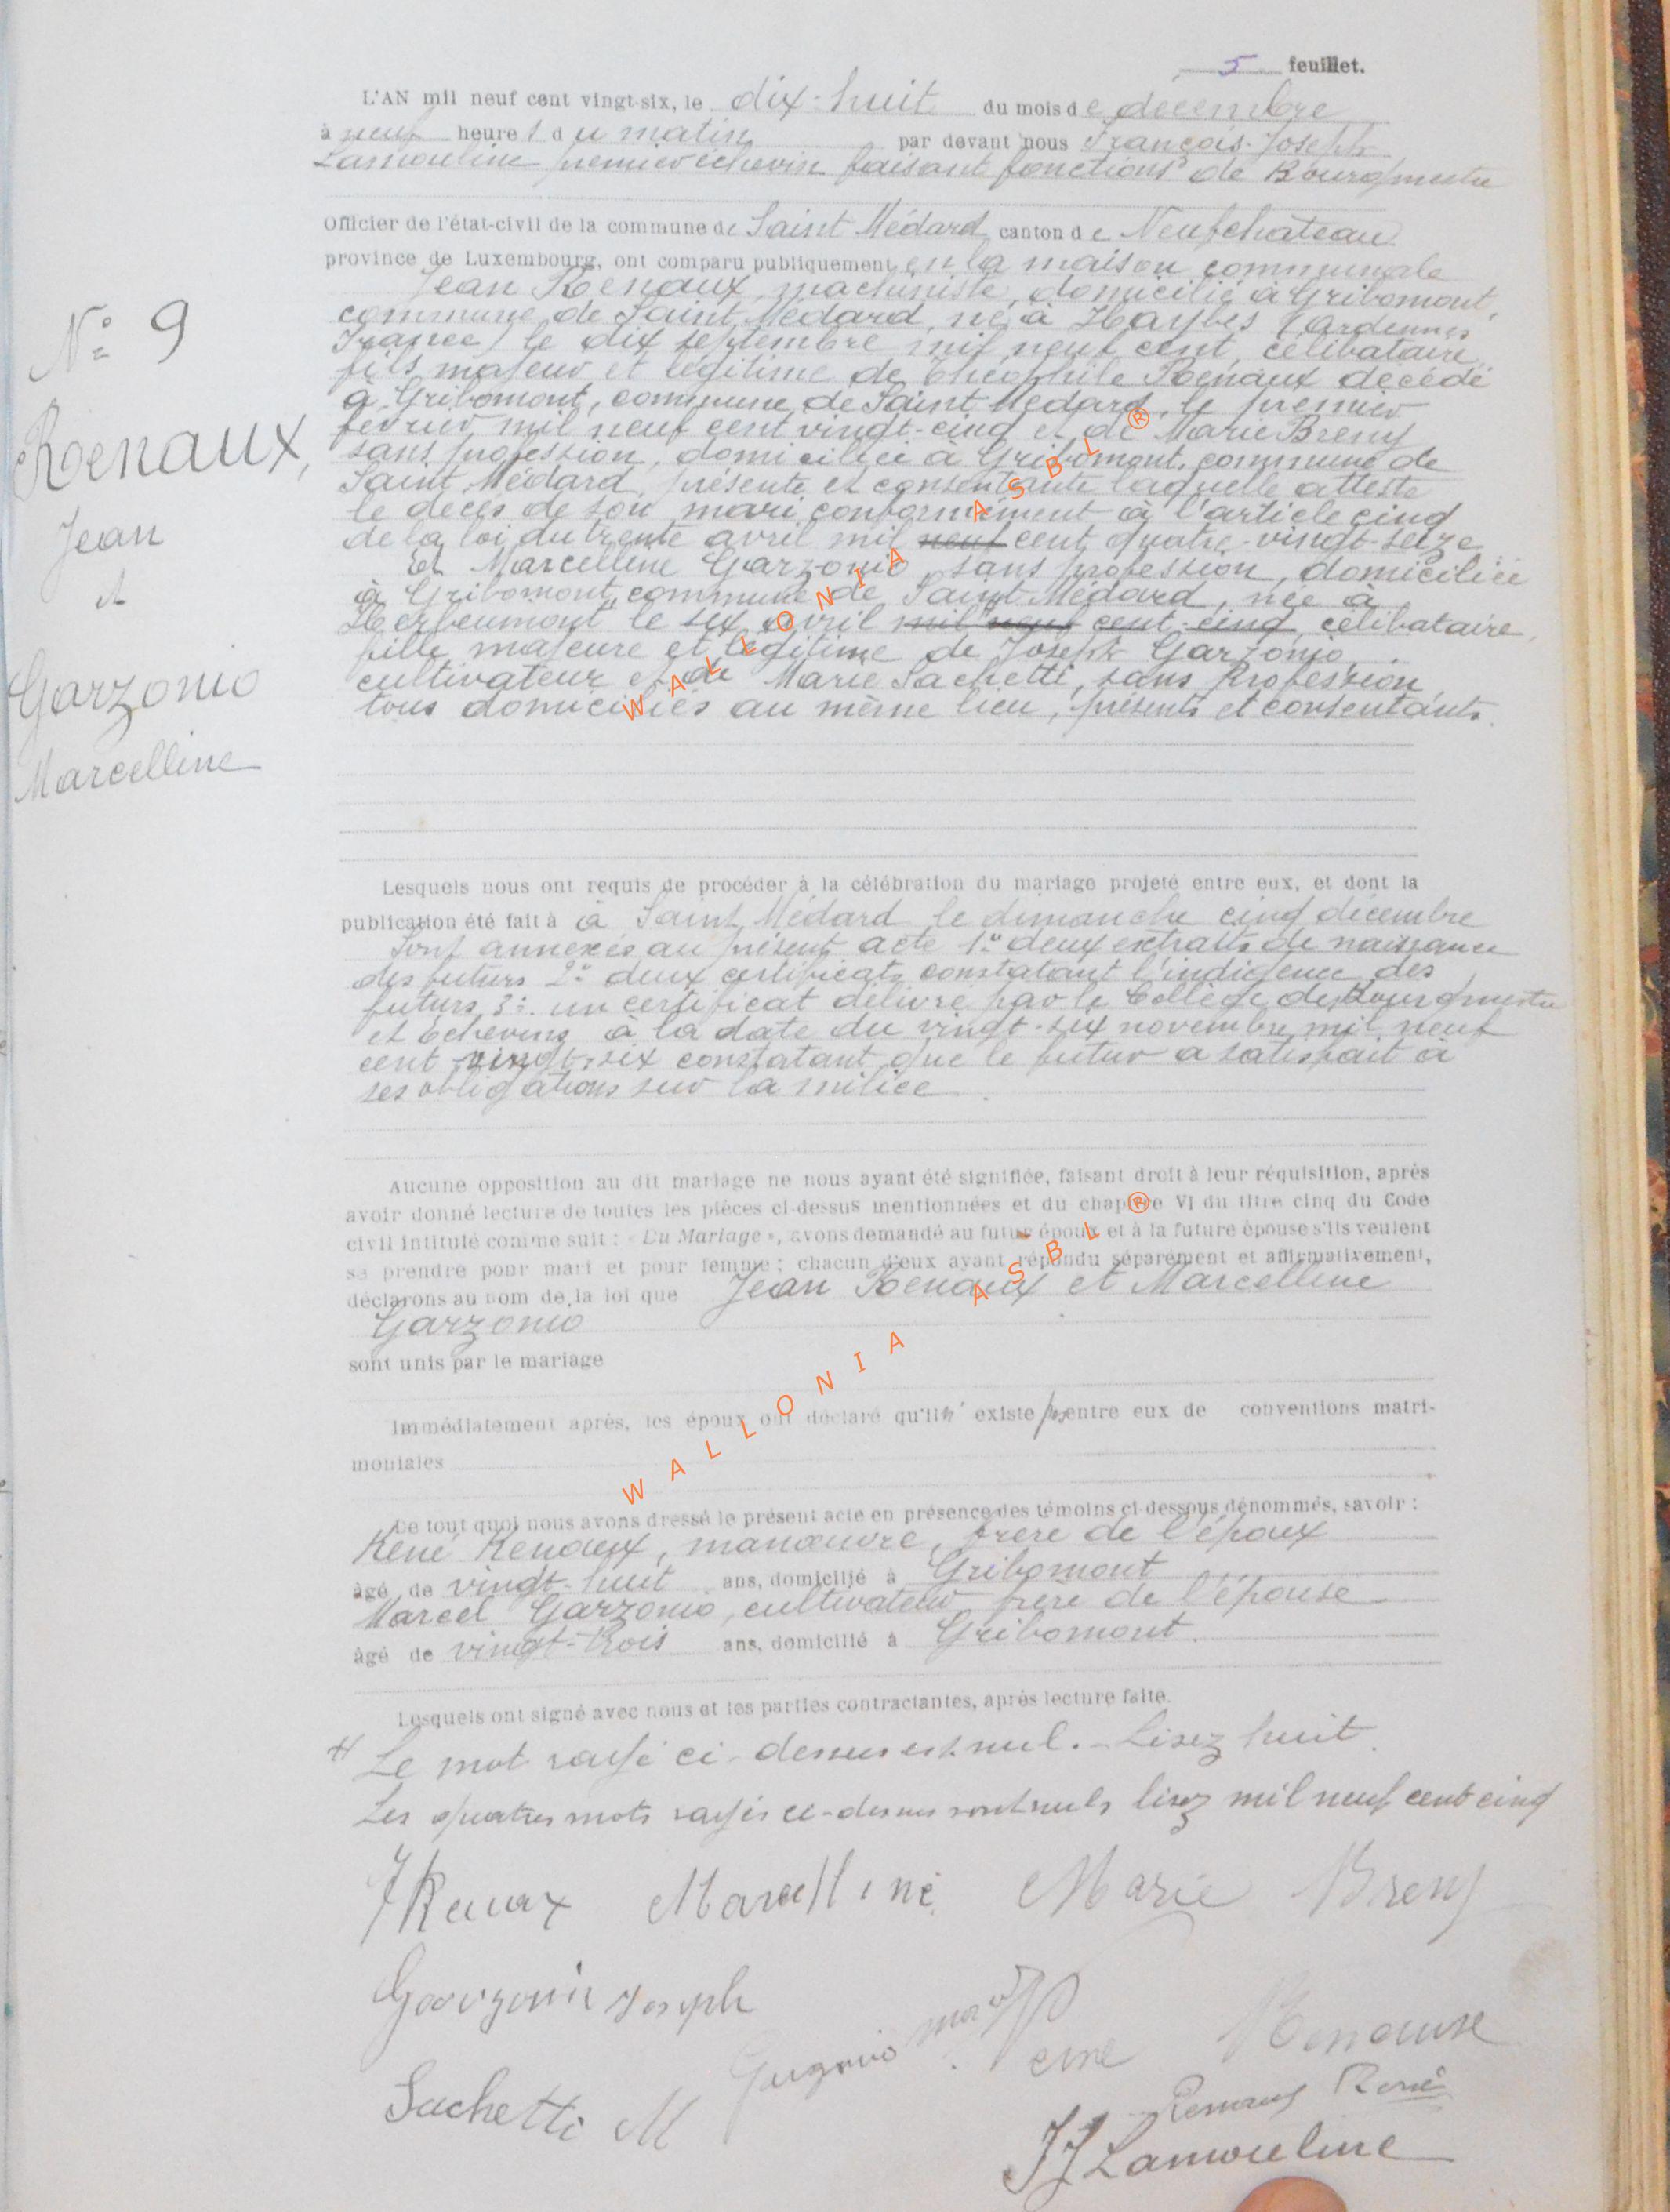 5 feuillet.
L'AN mil neuf cent vingt-six, le dix-huit du mois de décembre
à neuf heures du matin par devant nous François-Joseph
Lamouline premier échevin faisant fonctions de Bourgmestre
Officier de l'état-civil de la commune de Saint Médard canton de Neufchâteau
province de Luxembourg, ont comparu publiquement en la maison communale
Jean Renaux, machiniste, domicilié à Gribomont,
commune de Saint Médard, né à Haybes (Ardennes
France) le dix septembre mil neuf cent, célibataire,
fils majeur et légitime de Théophile Renaux décédé
à Gribomont, commune de Saint Médard, le premier
février mil neuf cent vingt-cinq et de Marie Breny
sans profession, domiciliée à Gribomont, commune de
Saint Médard, présente et consentante laquelle atteste
le décès de son mari conformément à l'article cinq
de la loi du trente avril mil neuf cent quatre-vingt-seize
Et Marcelline Garzonio, sans profession, domiciliée
à Gribomont, commune de Saint Médard, née à
Herbeumont le six avril mil neuf cent cinq, célibataire,
fille majeure et légitime de Joseph Garzonio,
cultivateur et de Marie Sachetti, sans profession,
tous domiciliés au même lieu, présents et consentants.
N° 9
Renaux,
Jean
et
Garzonio
Marcelline
Lesquels nous ont requis de procéder à la célébration du mariage projeté entre eux, et dont la
publication été fait à à Saint Médard le dimanche cinq décembre
Sont annexés au présent acte 1° deux extraits de naissance
des futurs 2° deux certificats constatant l'indigence des
futurs 3° un certificat délivré par le Collège des Bourgmestre
et Echevins à la date du vingt-six novembre mil neuf
cent vingt-six constatant que le futur a satisfait à
ses obligations sur la milice.
Aucune opposition au dit mariage ne nous ayant été signifiée, faisant droit à leur réquisition, après
avoir donné lecture de toutes les pièces ci-dessus mentionnées et du chapitre VI du titre cinq du Code
civil intitulé comme suit : « Du Mariage », avons demandé au futur époux et à la future épouse s'ils veulent
se prendre pour mari et pour femme ; chacun d'eux ayant répondu séparément et affirmativement,
déclarons au nom de la loi que Jean Renaux et Marcelline
Garzonio
sont unis par le mariage
Immédiatement après, les époux ont déclaré qu'il n'existe pas entre eux de conventions matri-
moniales
De tout quoi nous avons dressé le présent acte en présence des témoins ci-dessous dénommés, savoir :
René Renaux, manœuvre, frère de l'époux
âgé de vingt-huit ans, domicilié à Gribomont
Marcel Garzonio, cultivateur frère de l'épouse
âgé de vingt-trois ans, domicilié à Gribomont.
Lesquels ont signé avec nous et les parties contractantes, après lecture faite.
Le mot rayé ci-dessus est nul. - Lisez huit.
Les quatres mots rayés ci-dessus sont nuls lisez mil neuf cent cinq
J Renaux Marcelline Marie Breny
Garzonio Joseph
Sachetti M
Renaux René
FJ Lamouline
WALLONIA ASBL®
WALLONIA ASBL®